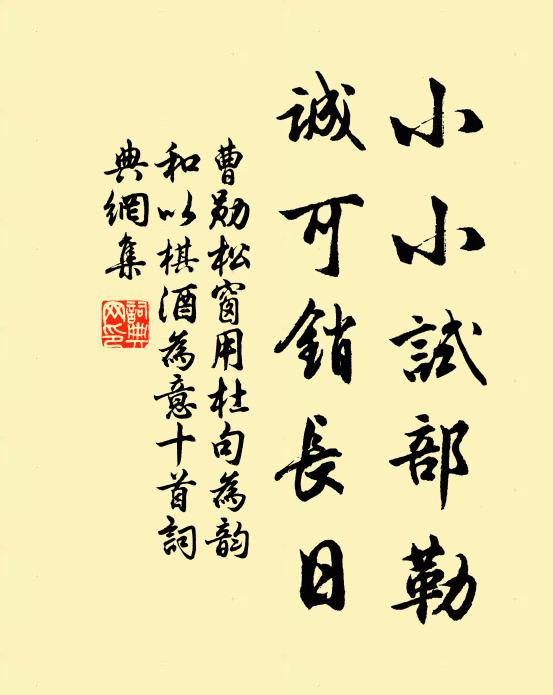 小小試部勒
誠可銷長日
曹勋松窗用杜句為韵
和以棋酒為意十首詞
典網集
詞典網印